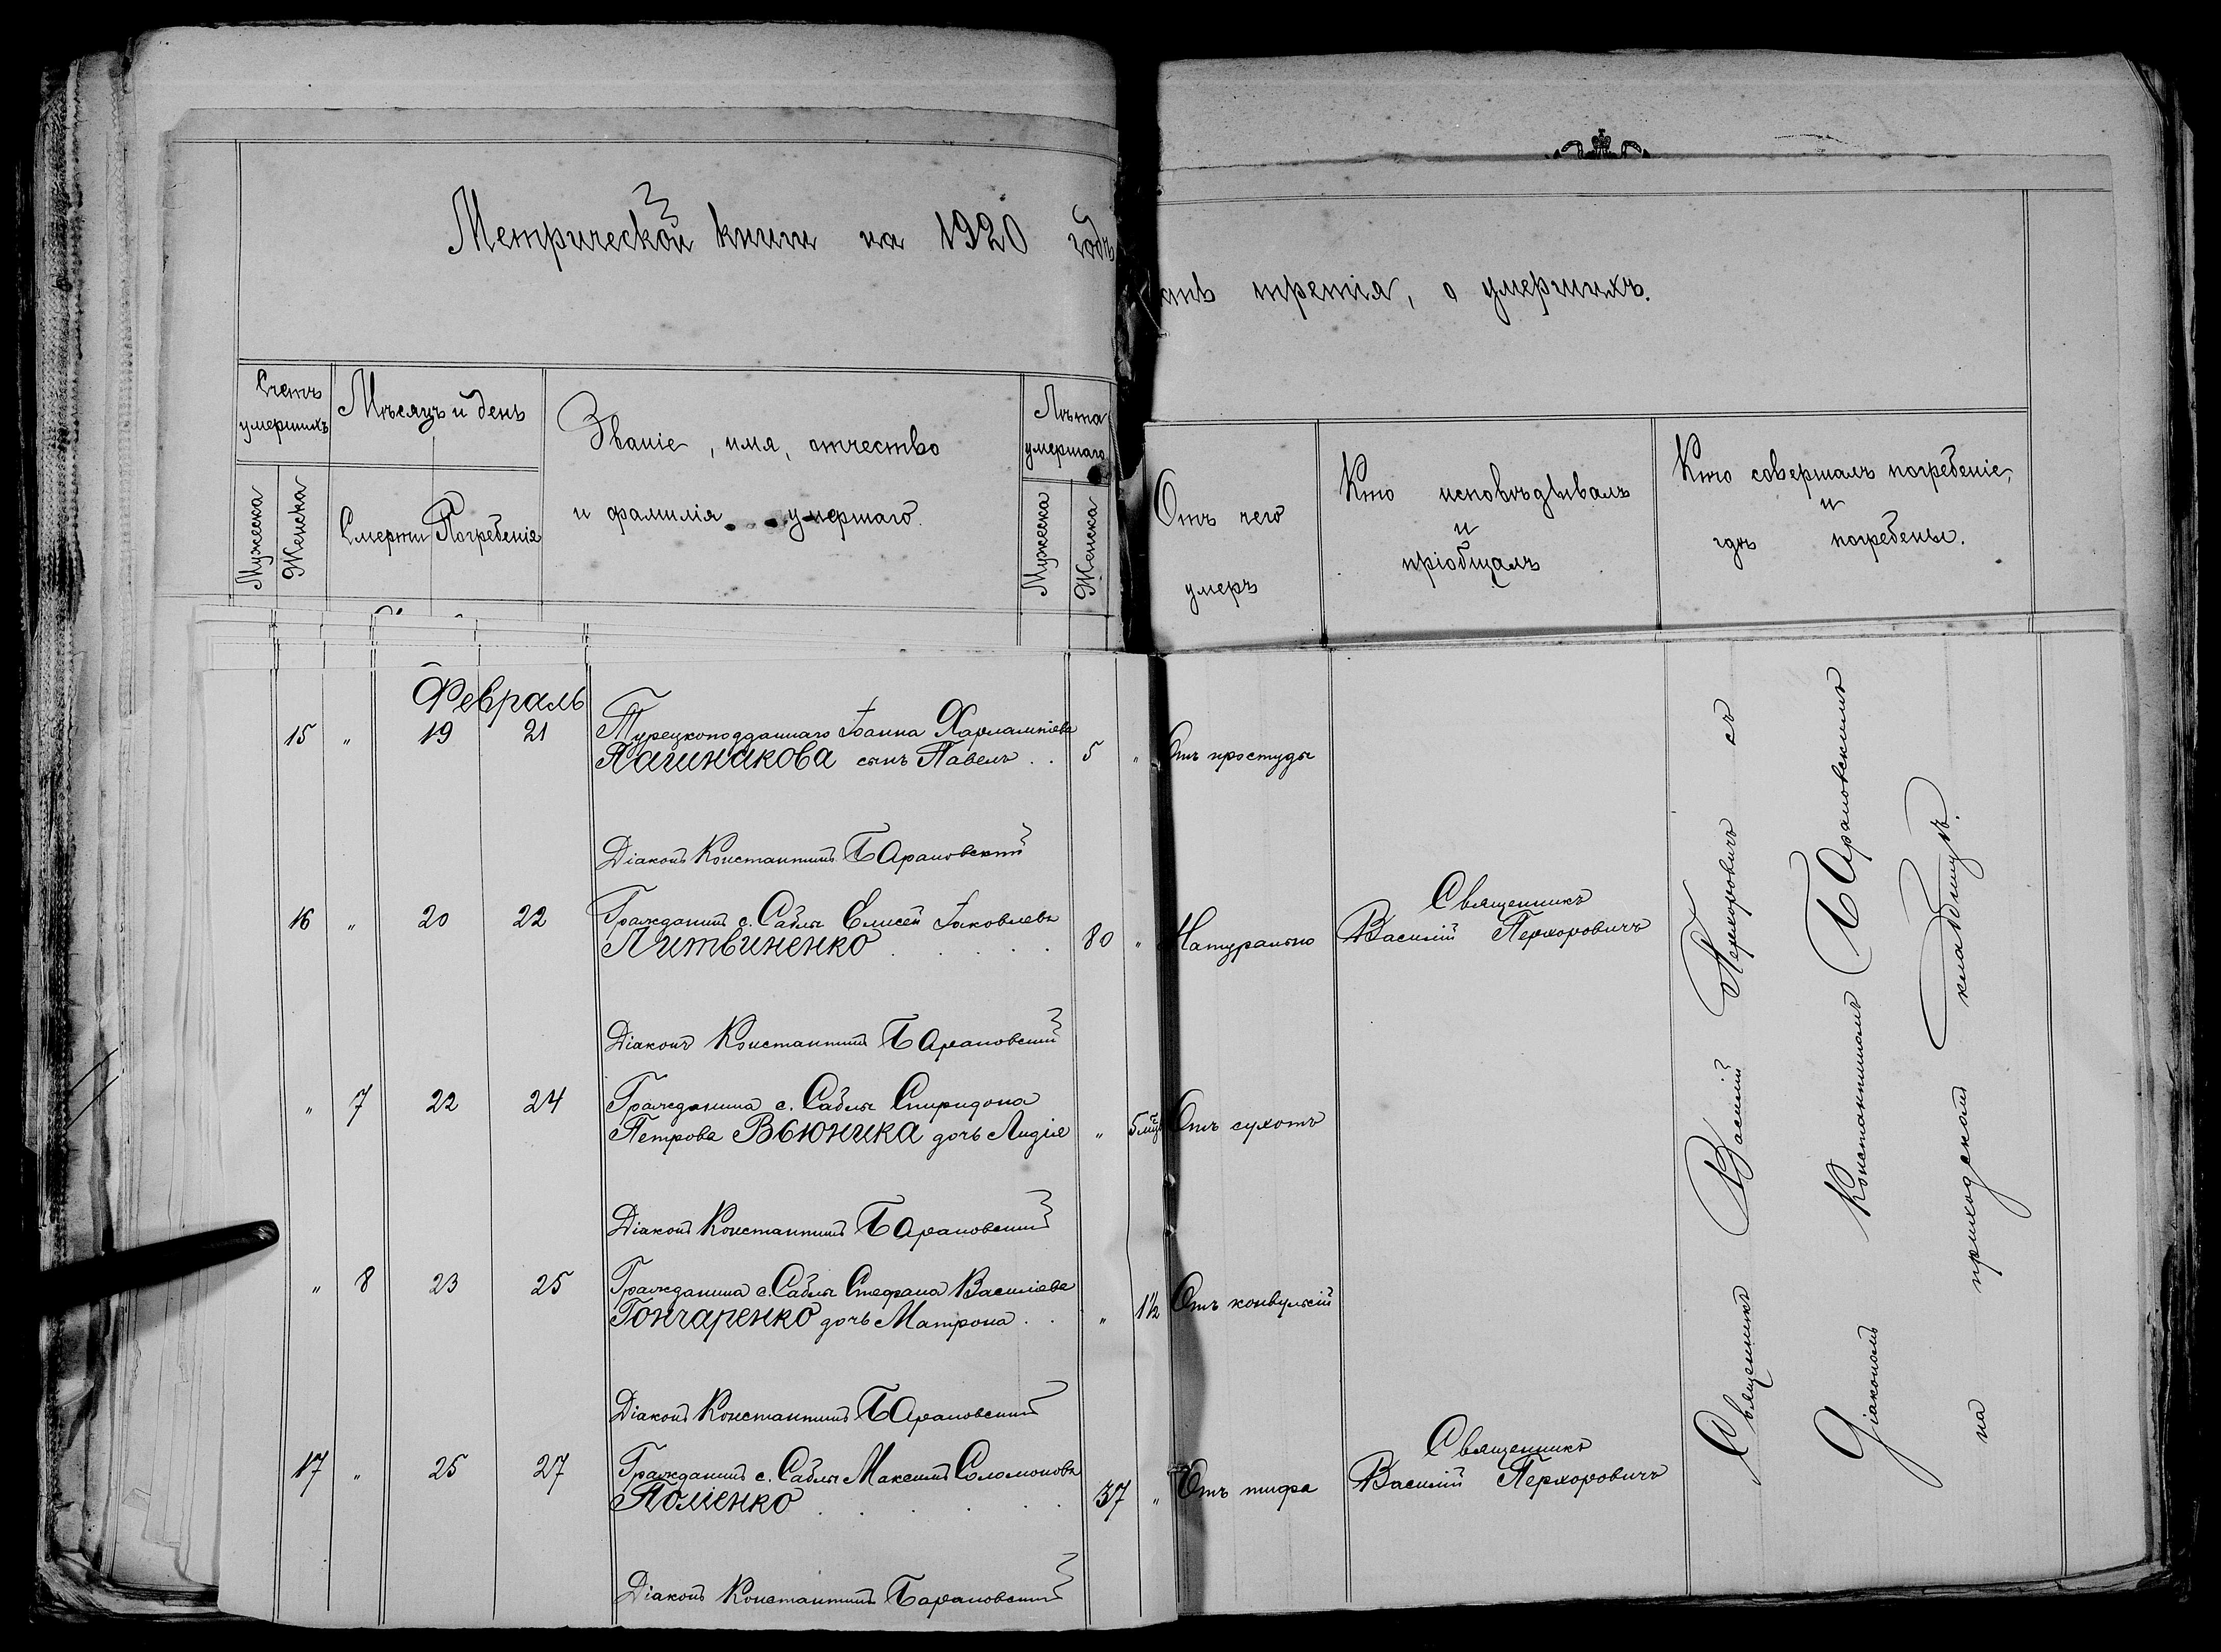 Метрической книги на 1920 годъ
третія, о умершихъ.
Счетъ умершихъ
Мужеска
Женска
Мѣсяцъ и день
Смерти
Погребенія
Званіе, имя, отчество
и фамилія умершаго.
Лѣта умершаго
Мужеска
Женска
Отъ чего
умеръ
Кто исповѣдывалъ
и
пріобщалъ
Кто совершалъ погребеніе,
и
гдѣ погребены.
Февраль
15 " 19 21 Турецкоподданнаго Іоанна Харлампіева
сынъ Павелъ . . 5 " Отъ простуды
Діаконъ Константинъ Барановскій
16 " 20 22 Гражданинъ с. Саблы Елисей Іаковлевъ
Литвиненко . . . . . 80 " Натурально
Священникъ
Василій Перхоровичъ
Діаконъ Константинъ Барановскій
" 7 22 24 Гражданина с. Саблы Спиридона
Петрова Вьюника дочь Лидія " 5 мц. Отъ сухотъ
Діаконъ Константинъ Барановскій
" 8 23 25 Гражданина с. Саблы Стефана Василіева
Гончаренко дочь Матрона . . " 1½ Отъ конвульсій
Діаконъ Константинъ Барановскій
17 " 25 27 Гражданинъ с. Саблы Максимъ Соломоновъ
Поліенко . . . . . 37 " Отъ тифа
Священникъ
Василій Перхоровичъ
Діаконъ Константинъ Барановскій
Священникъ Василій Перхоровичъ съ
Діакономъ Константиномъ Барановскимъ
на приходскомъ кладбищѣ.